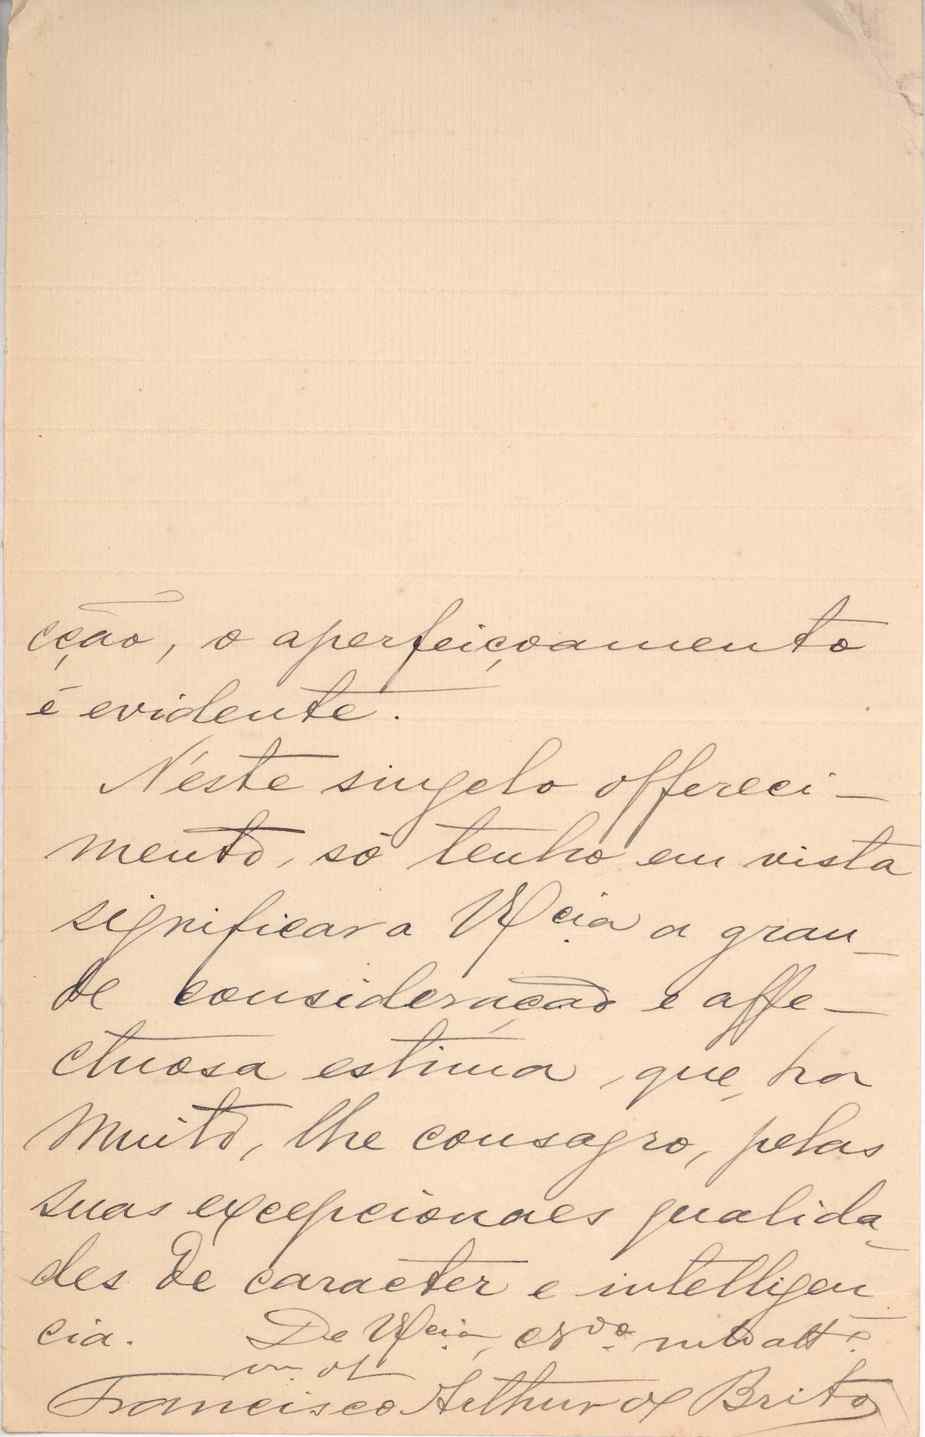 cção, o aperfeiçoamento
é evidente.
N'este singelo offereci-
mento, só tenho em vista
significar a V Ex.cia a gran-
de consideração e affe-
ctuosa estima, que, ha
muito, lhe consagro, pelas
suas excepcionaes qualida-
des de caracter e intelligen
cia. De V Ex.cia, cr.do m.to att.º
Francisco Arthur de Brito